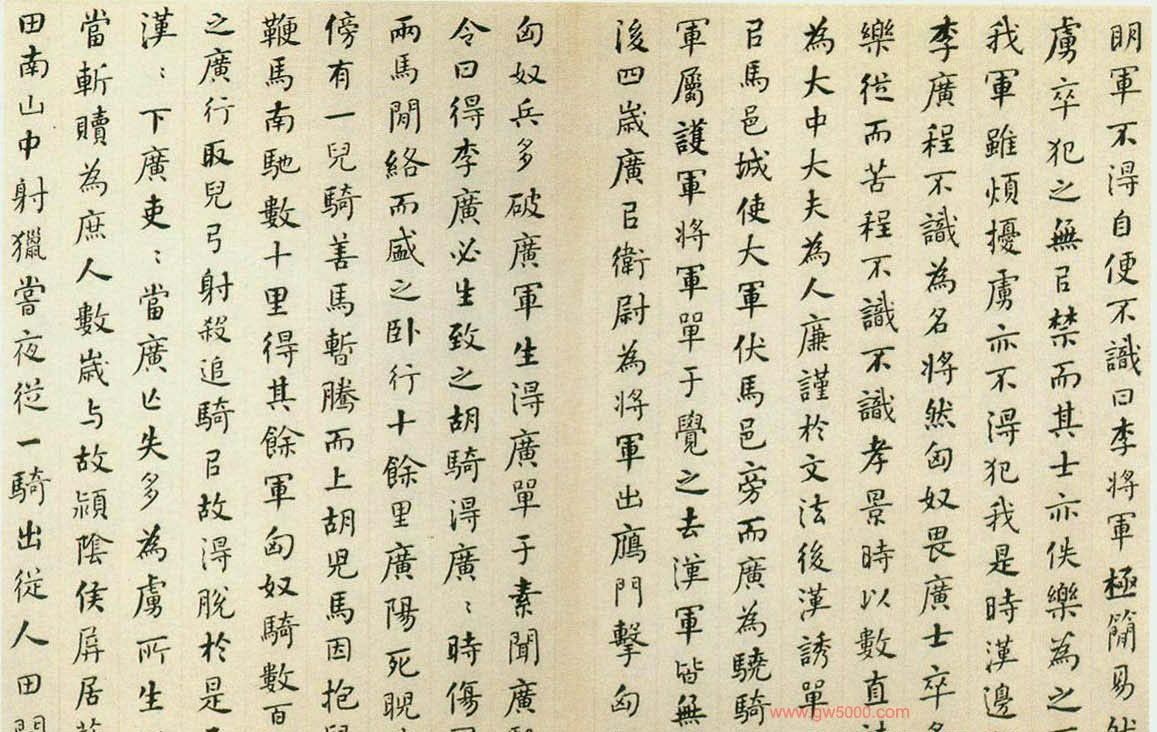 明軍不得自便不識曰李将軍極簡易然
虜卒犯之無㠯禁而其士亦佚樂為之
我軍雖煩擾虜亦不得犯我是時漢邊
李廣程不識為名将然匈奴畏廣士卒多
樂從而苦程不識不識孝景時以數直
為大中大夫為人廉謹於文法後漢誘單
㠯馬邑城使大軍伏馬邑旁而廣為驍騎
軍屬護軍将軍單于覺之去漢軍皆無
後四歲廣㠯衛尉為将軍出鴈門擊匈
匈奴兵多破廣軍生得廣單于素聞廣
令曰得李廣必生致之胡騎得廣〻時傷
兩馬閒絡而盛之卧行十餘里廣陽死睨
傍有一兒騎善馬暫騰而上胡兒馬因抱
鞭馬南馳數十里得其餘軍匈奴騎數百
之廣行取兒弓射殺追騎㠯故得脫於是
漢〻下廣吏〻當廣亡失多為虜所生
當斬贖為庶人數歲与故潁陰侯屏居
田南山中射獵嘗夜從一騎出從人田閒
www.gw5000.com